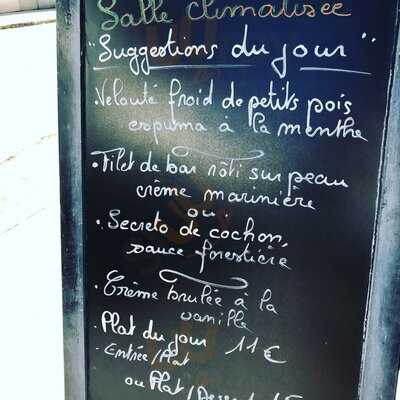 Salle climatisée
"Suggestions du jour"
. Velouté froid de petits pois
espuma à la menthe
. Filet de bar rôti sur peau
crème marinière
ou.
. Secreto de cochon,
sauce forestière
. Crème brulée à la
vanille
. Plat du jour 11€
. Entrée/Plat
ou Plat/Dessert